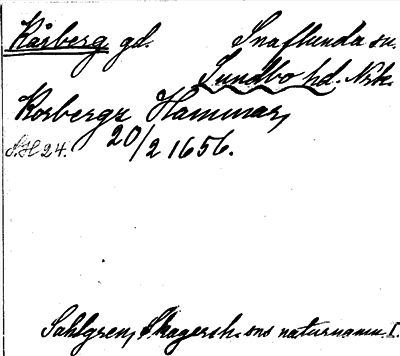 Kårberg gd. Snaflunda sn.
Sundbo hd. Nrk.
Korberga Hammar,
S.H 24. 20/2 1656.
Sahlgren, Skagersh. sns naturnamn I.